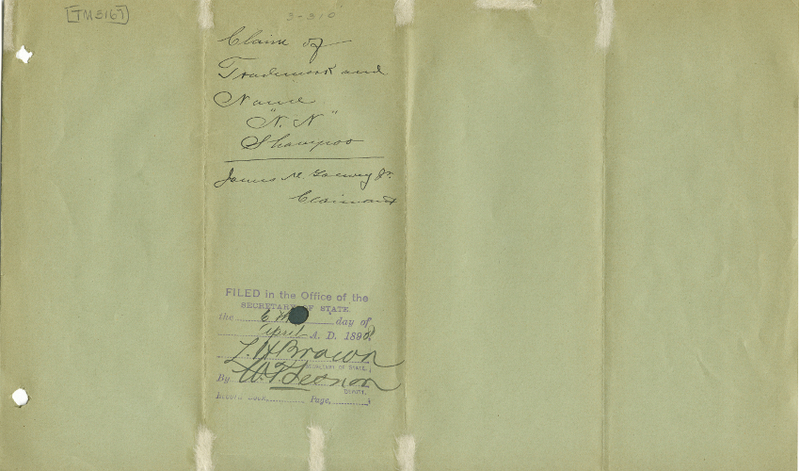 [TM3167]
3-310
Claim of
Trademark and
Name
"N. N"
Shampoo
James M. Jr.
Claimant
FILED in the Office of the
SECRETARY OF STATE
the 6th day of
April A. D. 189
L. H. Brown
SECRETARY OF STATE,
By W. T.
DEPUTY.
Record Book Page